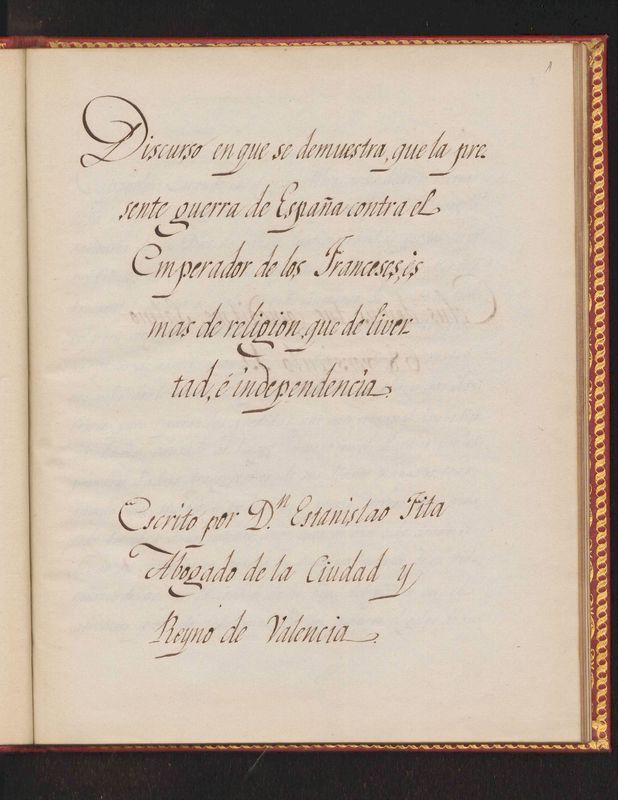 1
Discurso en que se demuestra, que la pre-
sente guerra de España contra el
Emperador de los Franceses, es
mas de religion, que de liver-
tad, é independencia.
Escrito por D.n Estanislao Fita
Abogado de la Ciudad y
Reyno de Valencia.